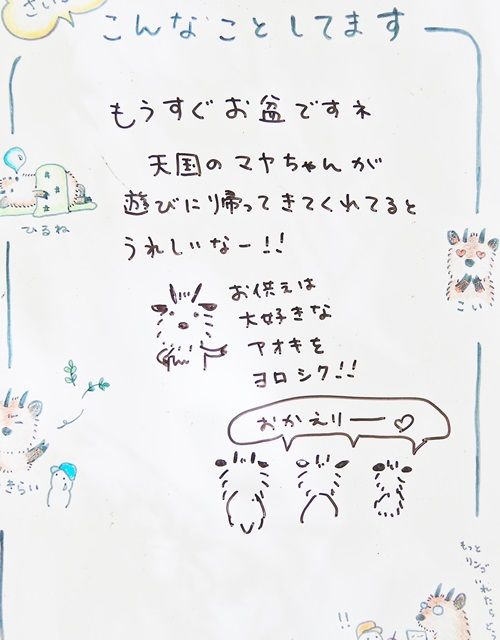 こんなことしてます
もうすぐお盆ですネ
天国のマヤちゃんが
遊びにり帰ってきてくれてると
うれしいなー!!
お供えは
大好きな
アオキを
ヨロシク!!
おかえりー♡
ひるね
こい
きらい
もっと
リンゴ
いれたらどう
!!